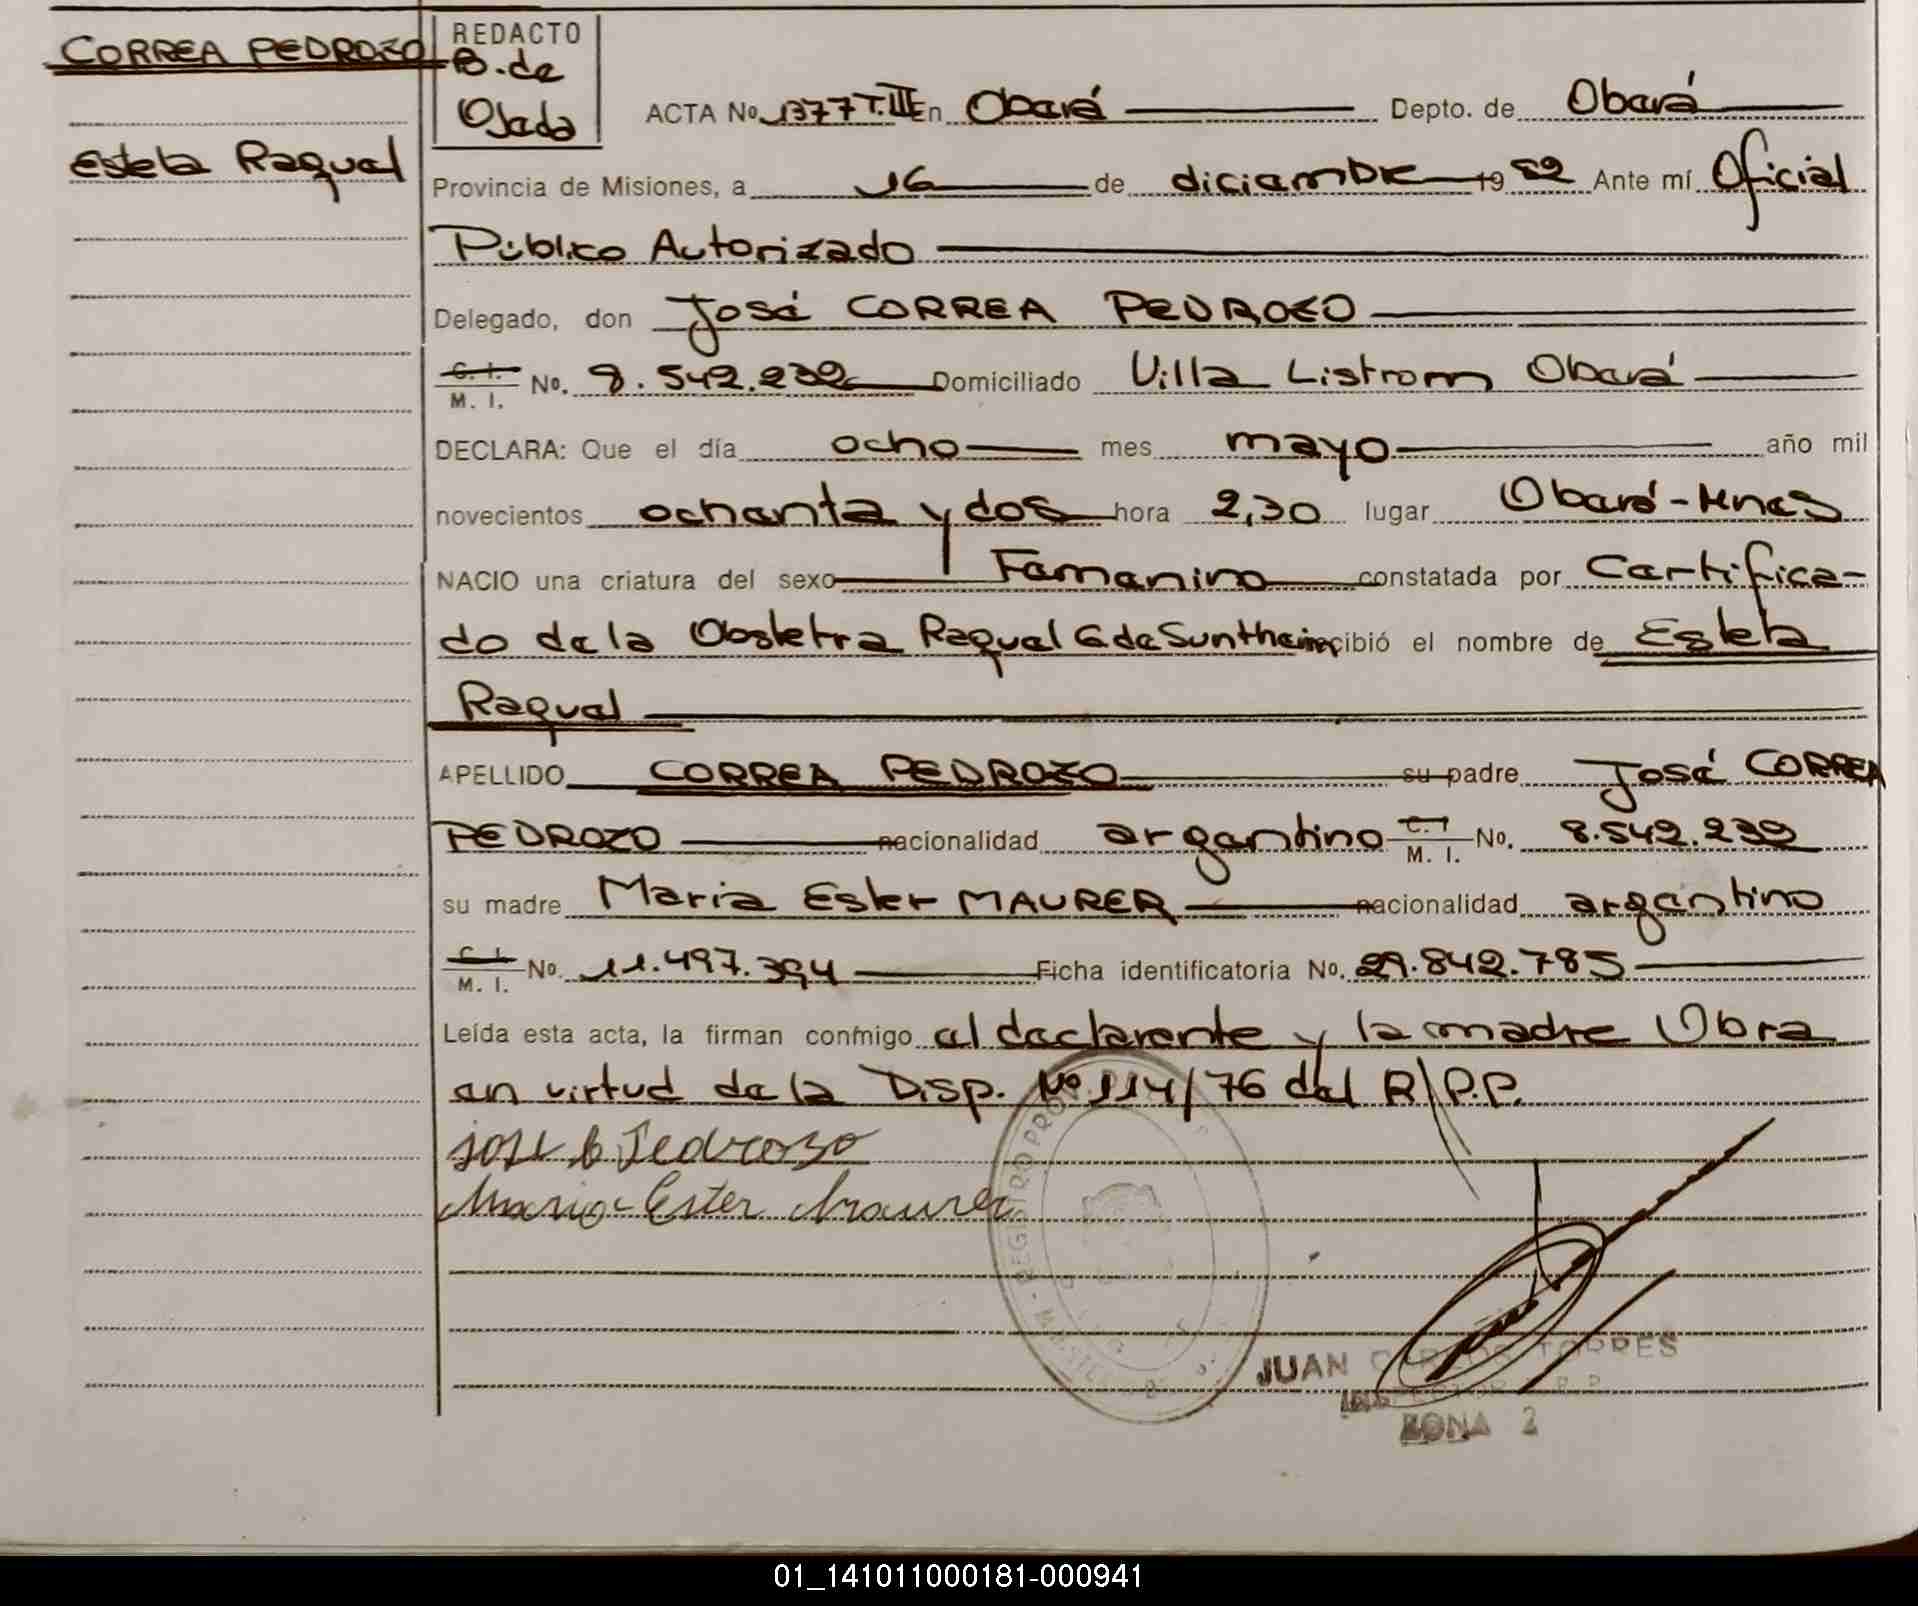 CORREA PEDROZO
Estela Raquel
REDACTO
B. de
Ojeda
ACTA No. 1377 T.III En Oberá Depto. de Oberá
Provincia de Misiones, a 16 de diciembre 1982 Ante mí Oficial
Público Autorizado
Delegado, don José CORREA PEDROZO
C. I. M. I. No. 8.542.232 Domiciliado Villa Listrom Oberá
DECLARA: Que el día ocho mes mayo año mil
novecientos ochenta y dos hora 2,30 lugar Oberá-Mnes
NACIO una criatura del sexo Femenino constatada por Certifica-
do de la Obstetra Raquel G de Suntheim recibió el nombre de Estela
Raquel
APELLIDO CORREA PEDROZO su padre José CORREA
PEDROZO nacionalidad argentino C. I M. I. No. 8.542.232
su madre Maria Ester MAURER nacionalidad argentino
C. I. M. I. No. 11.497.394 Ficha identificatoria No. 29.842.785
Leída esta acta, la firman conmigo el declarante y la madre Obra
en virtud de la Disp. Nº 114/76 del R.P.P.
José C Pedrozo
Maria Ester Maurer
REGISTRO PROV
JUAN CARLOS TORRES
INSPECTOR R.P.P.
ZONA 2
01_141011000181-000941